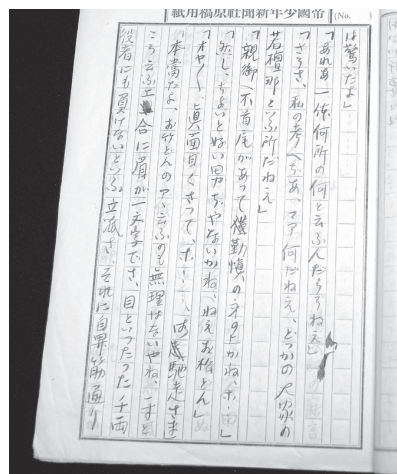 帝國少年新聞社原稿用紙
(No.　　)
は驚いたよ」
「あれあ一体何所の何と云ふんだらうねえ」
「さうさ、私の考へぢあ、マア何だねえ、どつかの大家の
若檀那と云ふ所だねえ」
「親御へ不首尾があつて謹慎の身の上かね、ホ・ホ」
しちよいと好い男ぢやないかね、ねえお松どん」
「オヤ〳〵眞面目くさつて、ホ・・・・・御馳走さま」
「本當だよ、お竹どんのアヽ云ふのも無理はないやね、一寸と
こう云ふ工合に眉が一文字でさ、目といつたつた千両
役者にも負けないといふ立派さ、それに鼻筋が通り